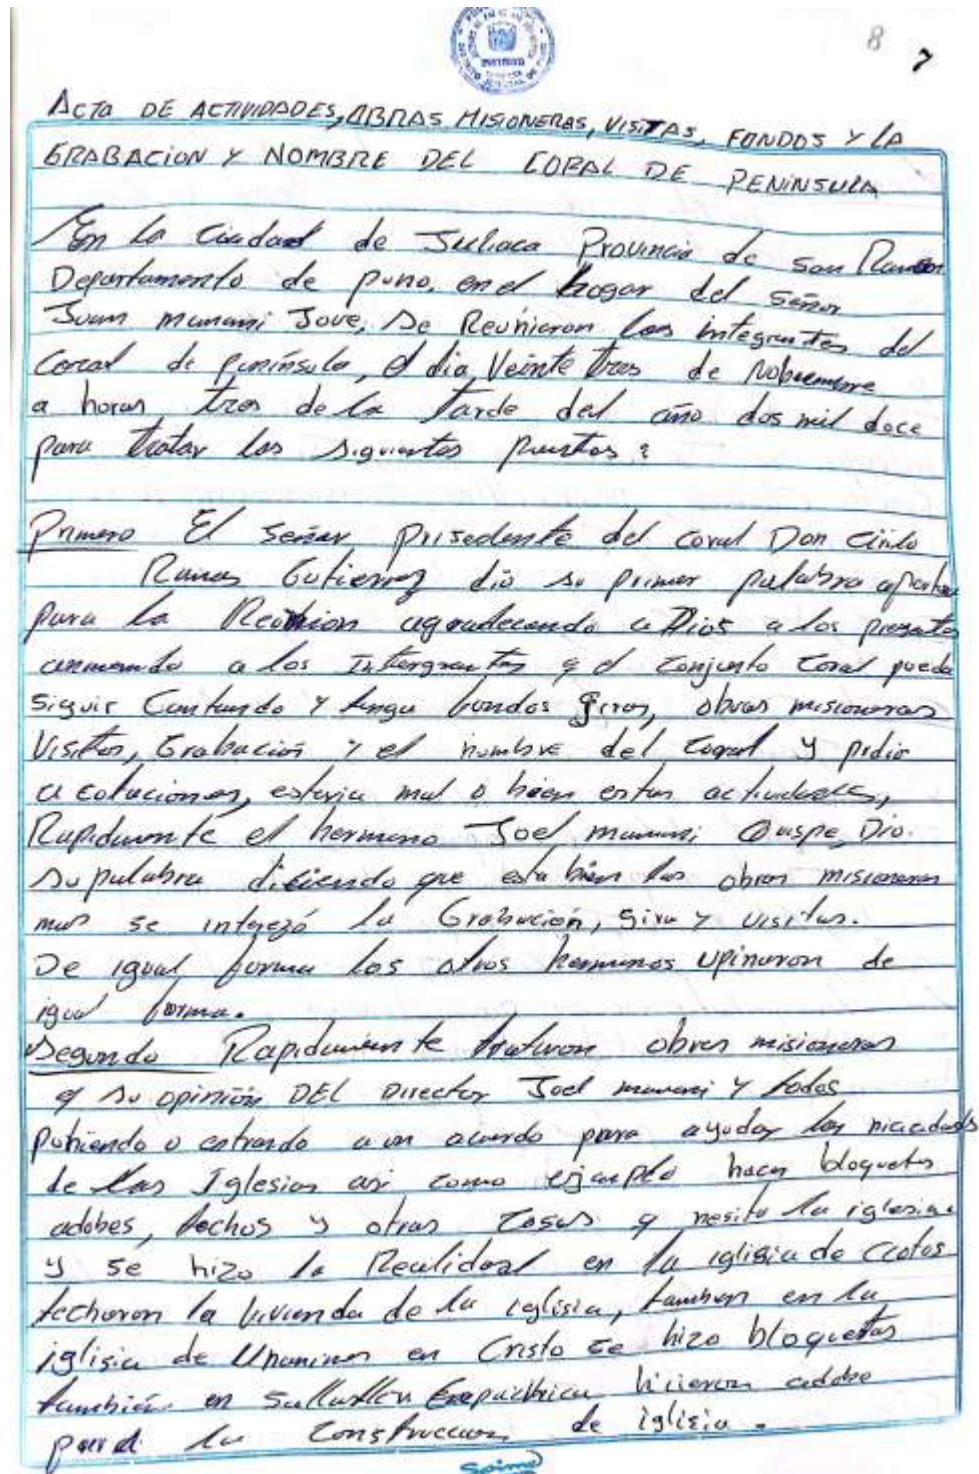 8 7
ACTA DE ACTIVIDADES, OBRAS MISIONERAS, VISITAS, FONDOS Y LA
GRABACION Y NOMBRE DEL CORAL DE PENINSULA
En la Ciudad de Juliaca Provincia de San Roman
Departamento de puno, en el hogar del señor
Juan mamani Jove, se Reunieron los integrantes del
Coral de península, el dia Veinte tres de Nobiembre
a horas tres de la tarde del año dos mil doce
para tratar los siguientes puntos:
Primero El señor prisedente del coral Don Cirilo
Ramos Gutierrez dio su primer palabra
para la Reunion agradeciendo a Dios a los presentes
animando a los Intergrantes q el conjunto coral pueda
siguir Cantando y tenga fondos giras, obras misioneras
Visitas, Grabación y el nombre del coral y pidio
a coluciones, estaria mal o bien estas actividades,
Rapidamente el hermano Joel mamani Quispe, Dio
su palabra diciendo que esta bien las obras misioneras
mas se interezó la Grabación, Gira y visitas.
De igual forma los otros hermanos upinaron de
igual forma.
Segundo Rapidamente trataron obras misioneras
q su opinión DEL Director Joel mamani y todos
puniendo o entrando a un acuerdo para ayudar las nicecidads
de las Iglesias asi como ejemplo hacer bloquetas
adobes, techos y otras cosas q nesita la iglesia
y se hizo la Realidad en la iglisia de
techaron la vivienda de la iglisia, tambien en la
iglisia de Unanimes en Cristo se hizo bloquetas
también en hicieron adobe
para la Construccion de iglisia.